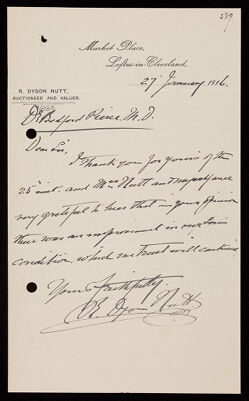 589
Market Place,
Loftus-in-Cleveland,
27 January 1916.
R. DYSON NUTT,
AUCTIONEER AND VALUER.
Dr Bedford Pierce M.D.
Dear Sir,
I thank you for yours of the
25th inst. and Mrs Nutt and myself are
very grateful to hear that in your opinion
there was an improvement in our Son's
condition, which we trust will continue
Yours faithfully.
R. Dyson Nutt